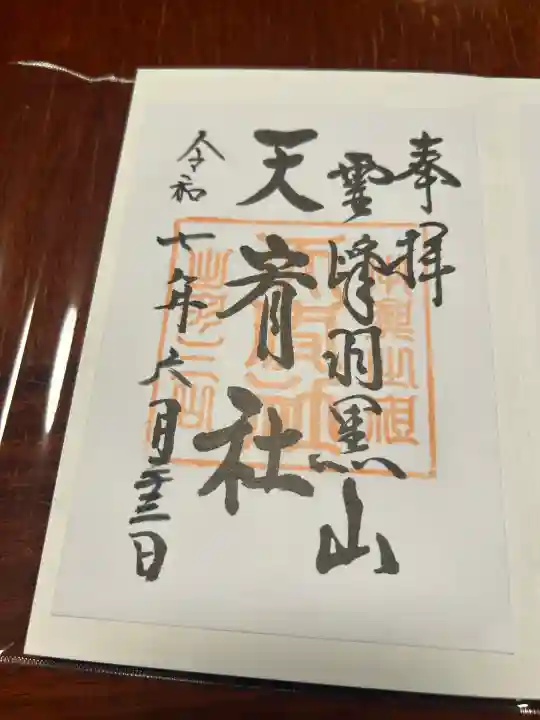 奉拝
霊峰羽黒山
天宥社
令和七年六月二十三日